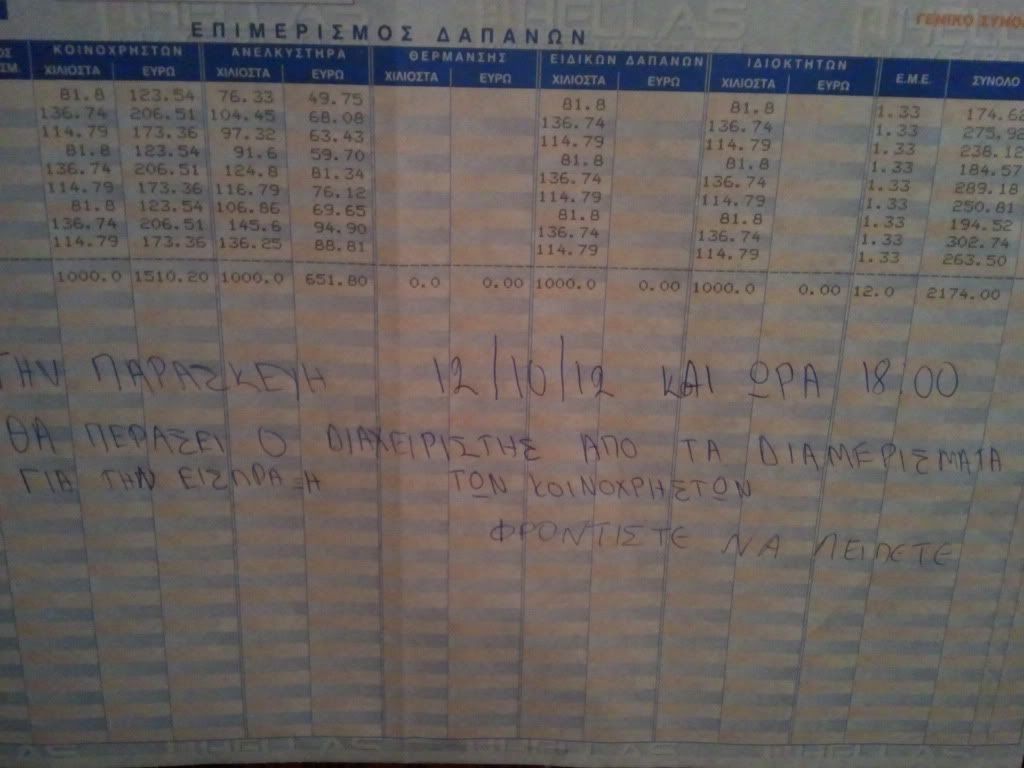 HELLAS
ΓΕΝΙΚΟ ΣΥΝΟ
ΕΠΙΜΕΡΙΣΜΟΣ ΔΑΠΑΝΩΝ
ΟΣ ΚΟΙΝΟΧΡΗΣΤΩΝ ΑΝΕΛΚΥΣΤΗΡΑ ΘΕΡΜΑΝΣΗΣ ΕΙΔΙΚΩΝ ΔΑΠΑΝΩΝ ΙΔΙΟΚΤΗΤΩΝ Ε.Μ.Ε. ΣΥΝΟΛΟ
ΣΜ. ΧΙΛΙΟΣΤΑ ΕΥΡΩ ΧΙΛΙΟΣΤΑ ΕΥΡΩ ΧΙΛΙΟΣΤΑ ΕΥΡΩ ΧΙΛΙΟΣΤΑ ΕΥΡΩ ΧΙΛΙΟΣΤΑ ΕΥΡΩ
81.8 123.54 76.33 49.75 81.8 81.8 1.33 174.62
136.74 206.51 104.45 68.08 136.74 136.74 1.33 275.92
114.79 173.36 97.32 63.43 114.79 114.79 1.33 238.12
81.8 123.54 91.6 59.70 81.8 81.8 1.33 184.57
136.74 206.51 124.8 81.34 136.74 136.74 1.33 289.18
114.79 173.36 116.79 76.12 114.79 114.79 1.33 250.81
81.8 123.54 106.86 69.65 81.8 81.8 1.33 194.52
136.74 206.51 145.6 94.90 136.74 136.74 1.33 302.74
114.79 173.36 136.25 88.81 114.79 114.79 1.33 263.50
1000.0 1510.20 1000.0 651.80 0.0 0.00 1000.0 0.00 1000.0 0.00 12.0 2174.00
ΤΗΝ ΠΑΡΑΣΚΕΥΗ 12/10/12 ΚΑΙ ΩΡΑ 18:00
ΘΑ ΠΕΡΑΣΕΙ Ο ΔΙΑΧΕΙΡΙΣΤΗΣ ΑΠΟ ΤΑ ΔΙΑΜΕΡΙΣΜΑΤΑ
ΓΙΑ ΤΗΝ ΕΙΣΠΡΑΞΗ ΤΩΝ ΚΟΙΝΟΧΡΗΣΤΩΝ
ΦΡΟΝΤΙΣΤΕ ΝΑ ΛΕΙΠΕΤΕ
HELLAS